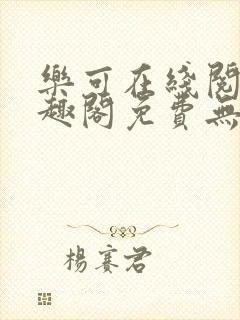 樂可在綫閱
趣閣免費無
楊賽君